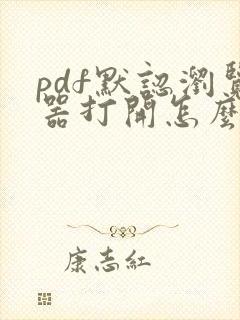 pdf默認瀏覽
器打開怎麼
康志紅